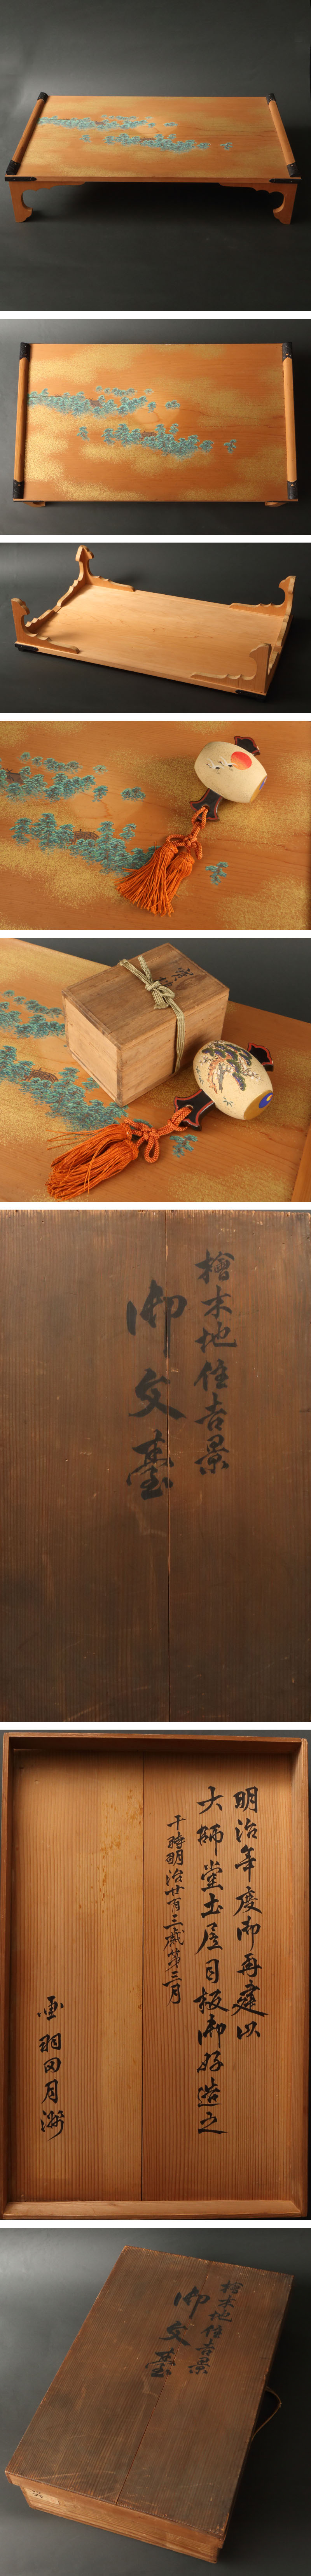 檜木地住吉景
御文臺
明治年度御再建以
大師堂土居目板御好造之
干時明治廿有三歳第三月
画 羽田月洲
檜木地住吉景
御文臺